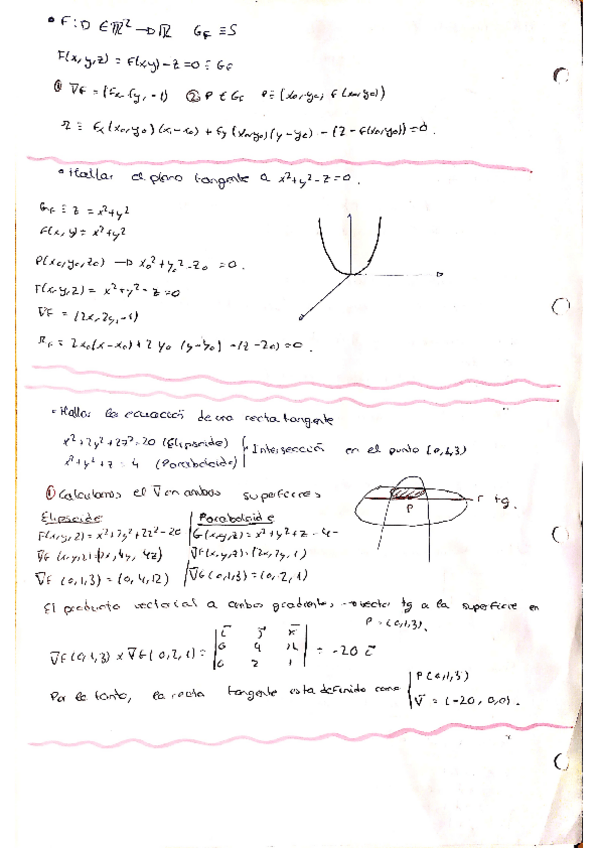 • F: D ∈ ℝ² → ℝ   G_F ≡ S
F(x, y, z) = f(x,y) - z = 0 ≡ G_F
① ∇F = (fx, fy, -1)   ② P ∈ G_F   P = (x₀, y₀, f(x₀,y₀))
π ≡ fx(x₀,y₀)(x-x₀) + fy(x₀,y₀)(y-y₀) - (z - f(x₀,y₀)) = 0.
• Hallar el plano tangente a x²+y²-z=0.
G_F ≡ z = x²+y²
f(x, y) = x²+y²
P(x₀, y₀, z₀) → x₀²+y₀²-z₀ = 0.
F(x,y,z) = x²+y²-z = 0
∇F = (2x, 2y, -1)
π_F ≡ 2x₀(x-x₀) + 2y₀(y-y₀) - (z-z₀) = 0.
• Hallar la ecuación de una recta tangente
x²+2y²+2z²=20 (Elipsoide)
x²+y²+z = 4 (Paraboloide)
Intersección en el punto (0,1,3)
① Calculamos el ∇ en ambas superficies
r tg.
P
Elipsoide
F(x,y,z) = x²+2y²+2z²-20
∇F(x,y,z) = (2x, 4y, 4z)
∇F(0,1,3) = (0,4,12)
Paraboloide
G(x,y,z) = x²+y²+z-4
∇F(x,y,z) = (2x, 2y, 1)
∇G(0,1,3) = (0,2,1)
El producto vectorial a ambos gradientes → vector tg a la superficie en
P = (0,1,3).
∇F(0,1,3) x ∇G(0,2,1) = | i j k | 0 4 12 | 0 2 1 | = -20 i
Por lo tanto, la recta tangente esta definido como
P(0,1,3)
v = (-20, 0,0).